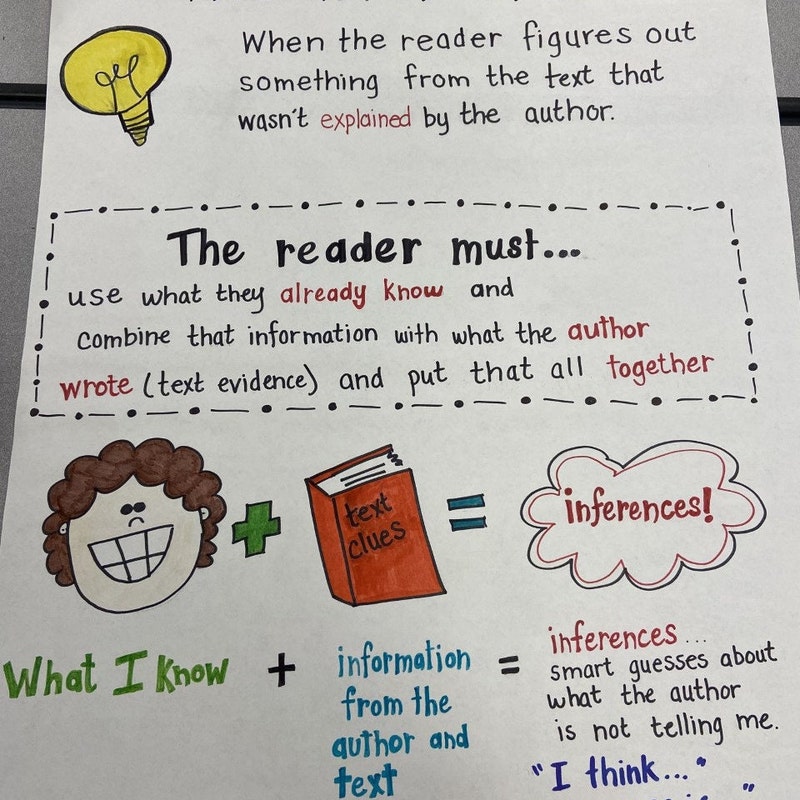 When the reader figures out
something from the text that
wasn't explained by the author.
The reader must...
use what they already know and
combine that information with what the author
wrote (text evidence) and put that all together
text
clues
inferences!
What I know + information
from the
author and
text
= inferences...
smart guesses about
what the author
is not telling me.
"I think..."